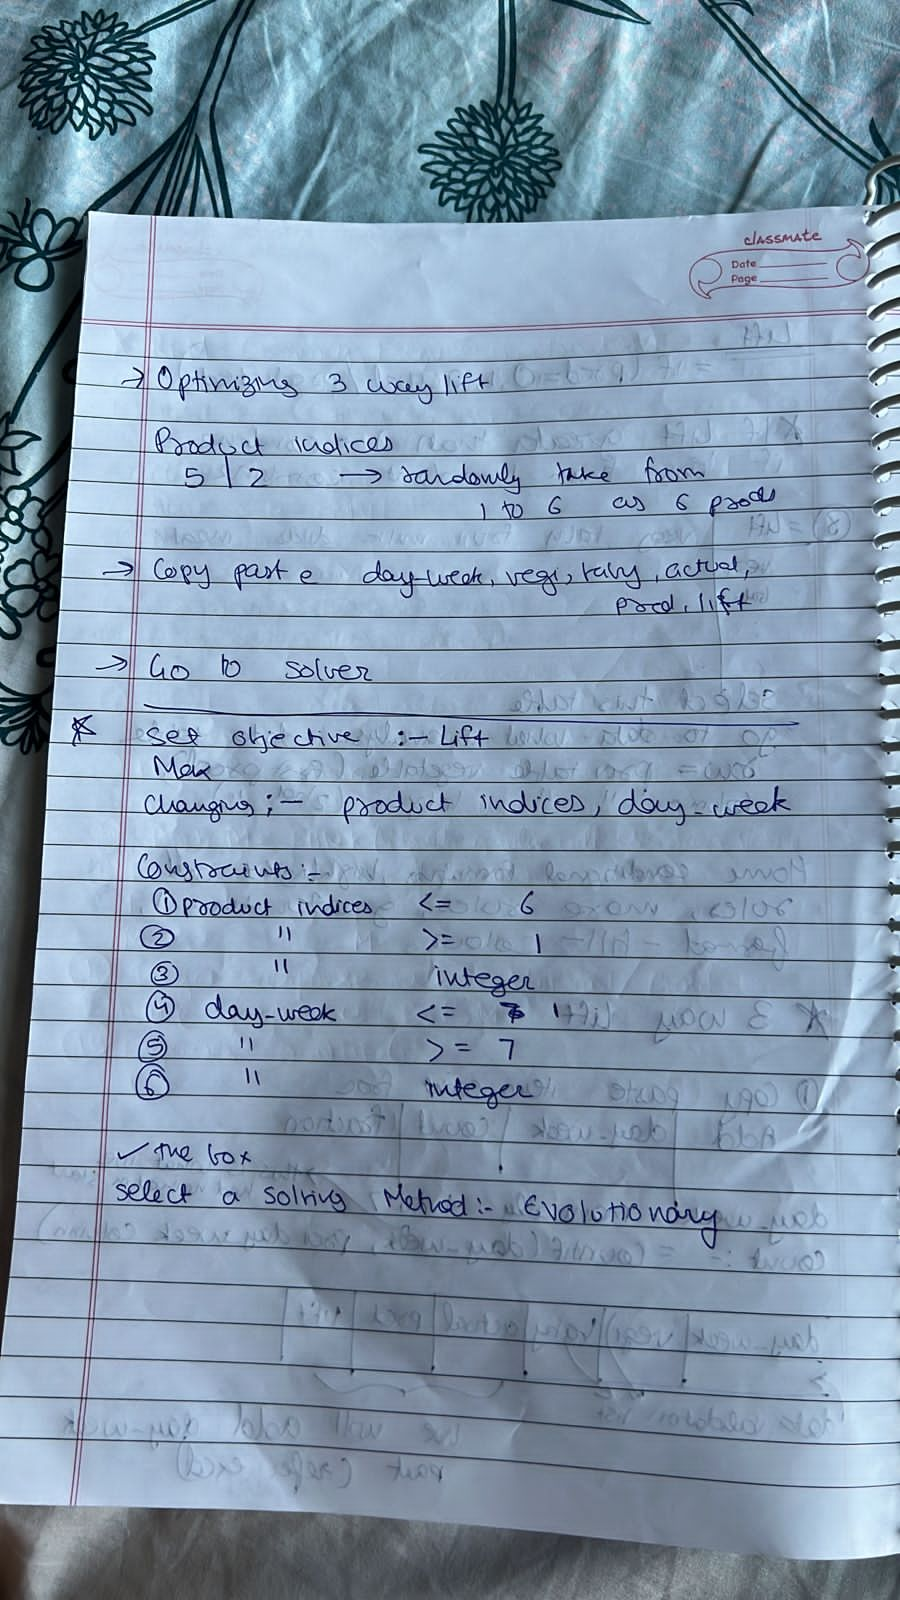 classmate
Date
Page
→ Optimizing 3 way lift
Product indices
5 | 2 → randomly take from
1 to 6 as 6 prods
→ Copy paste day-week, veg1, baby, actual,
pred, lift
→ Go to solver
* Set objective :- Lift
Max
Changing :- product indices, day-week
Constraints :-
① product indices <= 6
② " >= 1
③ " integer
④ day-week <= 1
⑤ " >= 7
⑥ " integer
✓ the box
select a solving Method :- Evolutionary